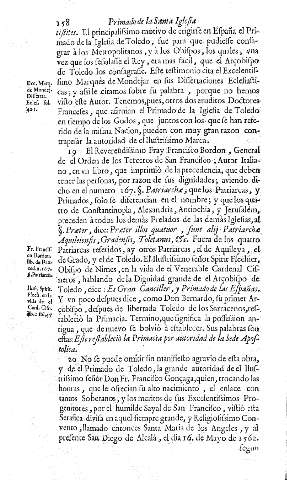 158 Primado de la Santa Iglesia
testes. El principalissimo motivo de erigirse en España el Pri-
mado de la Iglesia de Toledo, fue para que pudiesse consa-
grar à los Metropolitanos, y à los Obispos, los quales, una
vez que los señalasse el Rey, era mas facil, que el Arçobispo
de Toledo los consagrasse. Este testimonio cita el Excelentis-
simo Marquès de Mondejar en sus Dissertaciones Eclesiasti-
cas; y assi le citamos sobre su palabra, porque no hemos
visto este Autor. Tenemos, pues, otros dos eruditos Doctores
Franceses, que ciñeron el Primado de la Iglesia de Toledo
en tiempo de los Godos, que juntos con los que se han refe-
rido de la misma Nacion, pueden con muy gran razon contra-
pesar la autoridad de el Ilustrissimo Marca.
Exc. Marq.
de Mondej.
Dissertat.
Eccles. fol.
401.
19 El Reverendissimo Fray Francisco Bordon, General
de el Orden de los Terceros de San Francisco, Autor Italia-
no, en su Libro, que imprimiò de la precedencia, que deben
tener las personas, por razon de sus dignidades, aviendo di-
cho en el numero 167. §. Patriarchæ, que los Patriarcas, y
Primados, solo se diferencian en el nombre; y que los qua-
tro de Constantinopla, Alexandria, Antiochia, y Jerusalèn,
preceden à todos los demàs Prelados de las demàs Iglesias, al
§. Præter, dice: Præter illos quatuor, sunt alij Patriarchæ
Aquileiensis, Gradensis, Toletanus, &c. Fuera de los quatro
Patriarcas referidos, ay otros Patriarcas, el de Aquileya, el
de Grado, y el de Toledo. El Ilustrissimo señor Spirit Flechier,
Obispo de Nimes, en la vida de el Venerable Cardenal Cis-
neros, hablando de la Dignidad grande de el Arçobispo de
Toledo, dice: Es Gran Canciller, y Primado de las Españas.
Y un poco despues dice, como Don Bernardo, su primer Ar-
çobispo, despues de libertada Toledo de los Sarracenos, es-
tableciò la Primacia. Termino, que significa la possession an-
tigua, que de nuevo se bolviò à establecer. Sus palabras son
estas: Este restableciò la Primacia por autoridad de la Sede Apos-
tolica.
20 No se puede omitir sin manifiesto agravio de esta obra,
y de el Primado de Toledo, la grande autoridad de el Ilus-
trissimo señor Don Fr. Francisco Gonçaga, quien, trocando las
honras, que le ofrecian su alto nacimiento, el enlace con
tantos Soberanos, y los meritos de sus Excelentissimos Pro-
genitores, por el humilde sayal de San Francisco, vistiò esta
Serafica divisa en aquel siempre grande, y Religiosissimo Con-
vento, llamado entonces Santa Maria de los Angeles, y al
presente San Diego de Alcalà, el dia 16. de Mayo de 1562.
segun